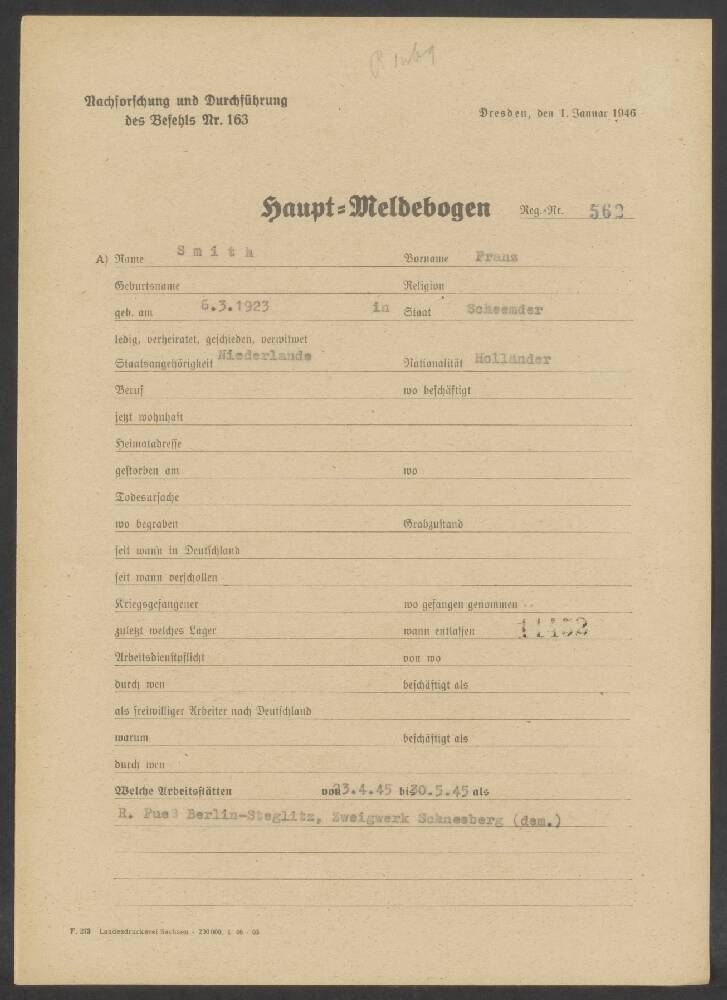 Nachforschung und Durchführung
des Befehls Nr. 163
Dresden, den 1. Januar 1946
Haupt-Meldebogen Reg.-Nr. 562
A) Name Smith Vorname Franz
Geburtsname Religion
geb. am 6.3.1923 in Staat Scheemder
ledig, verheiratet, geschieden, verwitwet
Staatsangehörigkeit Niederlande Nationalität Holländer
Beruf wo beschäftigt
jetzt wohnhaft
Heimatadresse
gestorben am wo
Todesursache
wo begraben Grabzustand
seit wann in Deutschland
seit wann verschollen
Kriegsgefangener wo gefangen genommen
zuletzt welches Lager wann entlassen
Arbeitsdienstpflicht von wo
durch wen beschäftigt als
als freiwilliger Arbeiter nach Deutschland
warum beschäftigt als
durch wen
Welche Arbeitsstätten von 23.4.45 bis 30.5.45 als
R. Fueß Berlin-Steglitz, Zweigwerk Schneeberg (dem.)
F. 213 Landesdruckerei Sachsen